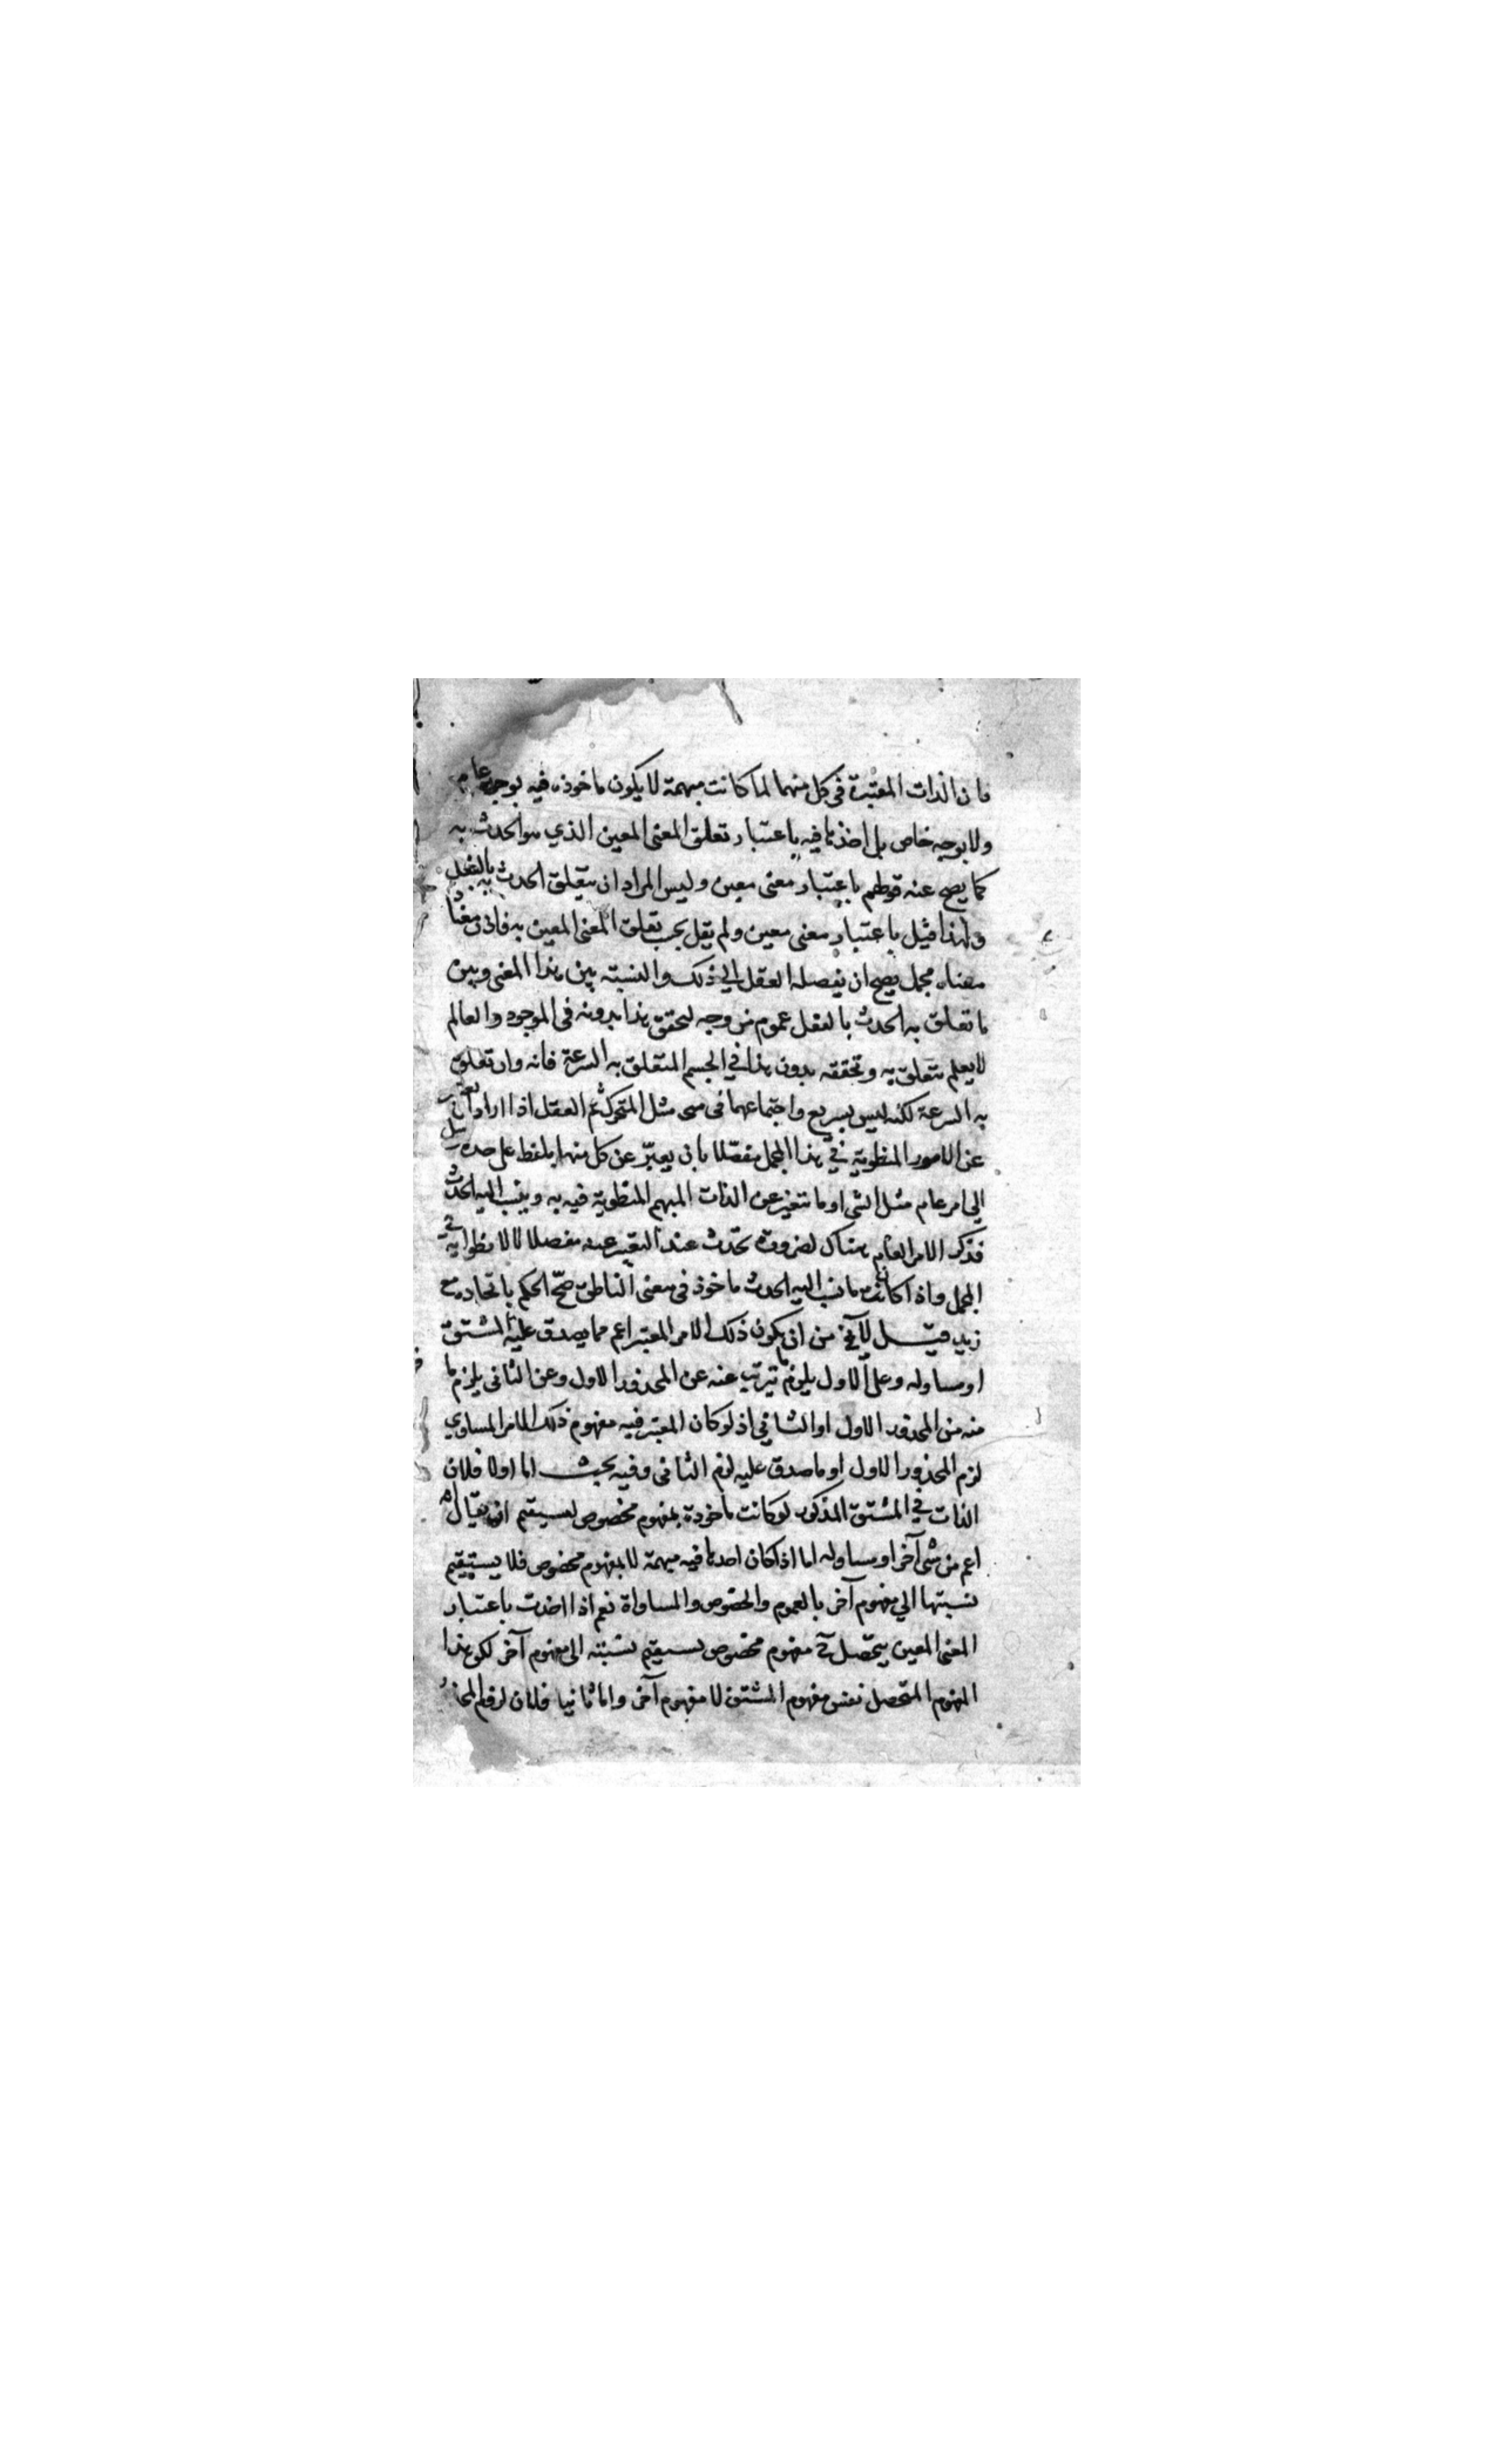 فان الذات المعتبرة فى كل منهما لما كانت مبهمة لا يكون ماخوذه فيه بوجه عام
ولا بوجه خاص بل اخذتا فيه باعتبار تعلق المعنى المعين الذي هو الحدث به
كما يصح عنه قولهم باعتبار معنى معين وليس المراد ان يتعلق الحدث به بالفعل
ولهذا قيل باعتبار معنى معين ولم يقل بحسب تعلق المعنى المعين به فاذن معنا
معناه مجمل يصح ان يفصله العقل الي ذلك والنسبته بين هذا المعنى وبين
ما تعلق به الحدث بالفعل عموم من وجه لتحقق هذا بدونه فى الموجود والعالم
لا يعلم يتعلق به وتحققه بدون هذا في الجسم المتعلق به السرعة فانه وان تعلق
به السرعة لكنه ليس بسريع واجتماعهما فى مثل المتحرك ثم العقل اذا اراد ان يعبر
عن الامور المنطوية في هذا المجمل مفصلا بان يعبّر عن كل منها بلفظ على حده
الي امر عام مثل الشى او ما يتغير عن الذات المبهم المنطوية فيه به وينسب اليه الحدث
فذكر الامر العام هناك لضرورة تحدث عند التعبير عنه مفصلا لا لانطوايه فى
المجمل واذا كانت ما نسب اليه الحدث ماخوذ فى معنى الناطق صحّ الحكم باتحاده مع
زيد قيل لا يخ من ان يكون ذلك الامر المعتبر اعم مما يصدق عليه المشتق
او مساو له وعلى الاول يلزم ما ترتب عنه عن المحذور الاول وعن الثانى يلزم ما
منه من المحذور الاول او الثاني اذ لو كان المعتبر فيه مفهوم ذلك الامر المساوي
لزم المحذور الاول او ما صدق عليه لزم الثانى وفيه بحث اما اولا فلان
الذات في المشتق المذكور لو كانت ماخوذة بمفهوم مخصوص لسيقتم ان يقال انه
اعم من شى آخر او مساو له اما اذا كان احدتا فيه مبهمة لا بمفهوم مخصوص فلا يستيقيم
نسبتها الي مفهوم آخر بالعموم والخصوص والمساواة نعم اذا اخذت باعتبار
المعنى المعين يتحصل مفهوم مخصوص يستقيم نسبته الى مفهوم آخر لكن هذا
المفهوم المتحصل نفس مفهوم المشتق لا مفهوم آخر واما ثانيا فلان لزوم المحذ